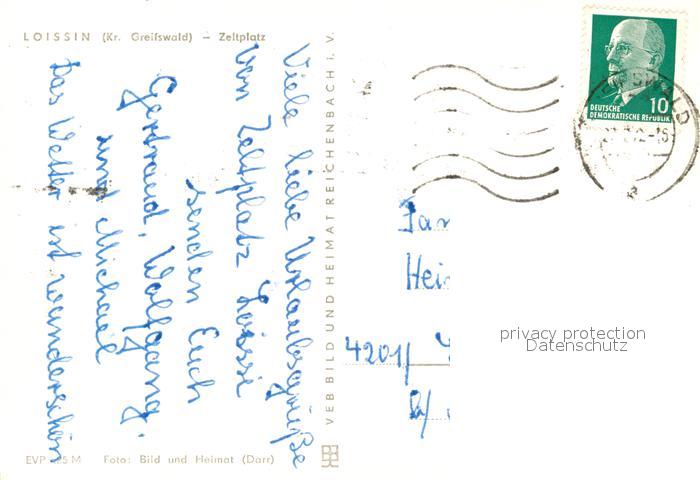 LOISSIN (Kr. Greifswald) – Zeltplatz
Viele liebe Urlaubsgrüße
vom Zeltplatz Loissi
senden Euch
Gertraud, Wolfgang,
und Michael
Das Wetter ist wunderschön
EVP 25 M Foto: Bild und Heimat (Darr)
VEB BILD UND HEIMAT REICHENBACH i. V.
DEUTSCHE
DEMOKRATISCHE REPUBLIK
10
Fam
Hei
4201/
privacy protection
Datenschutz